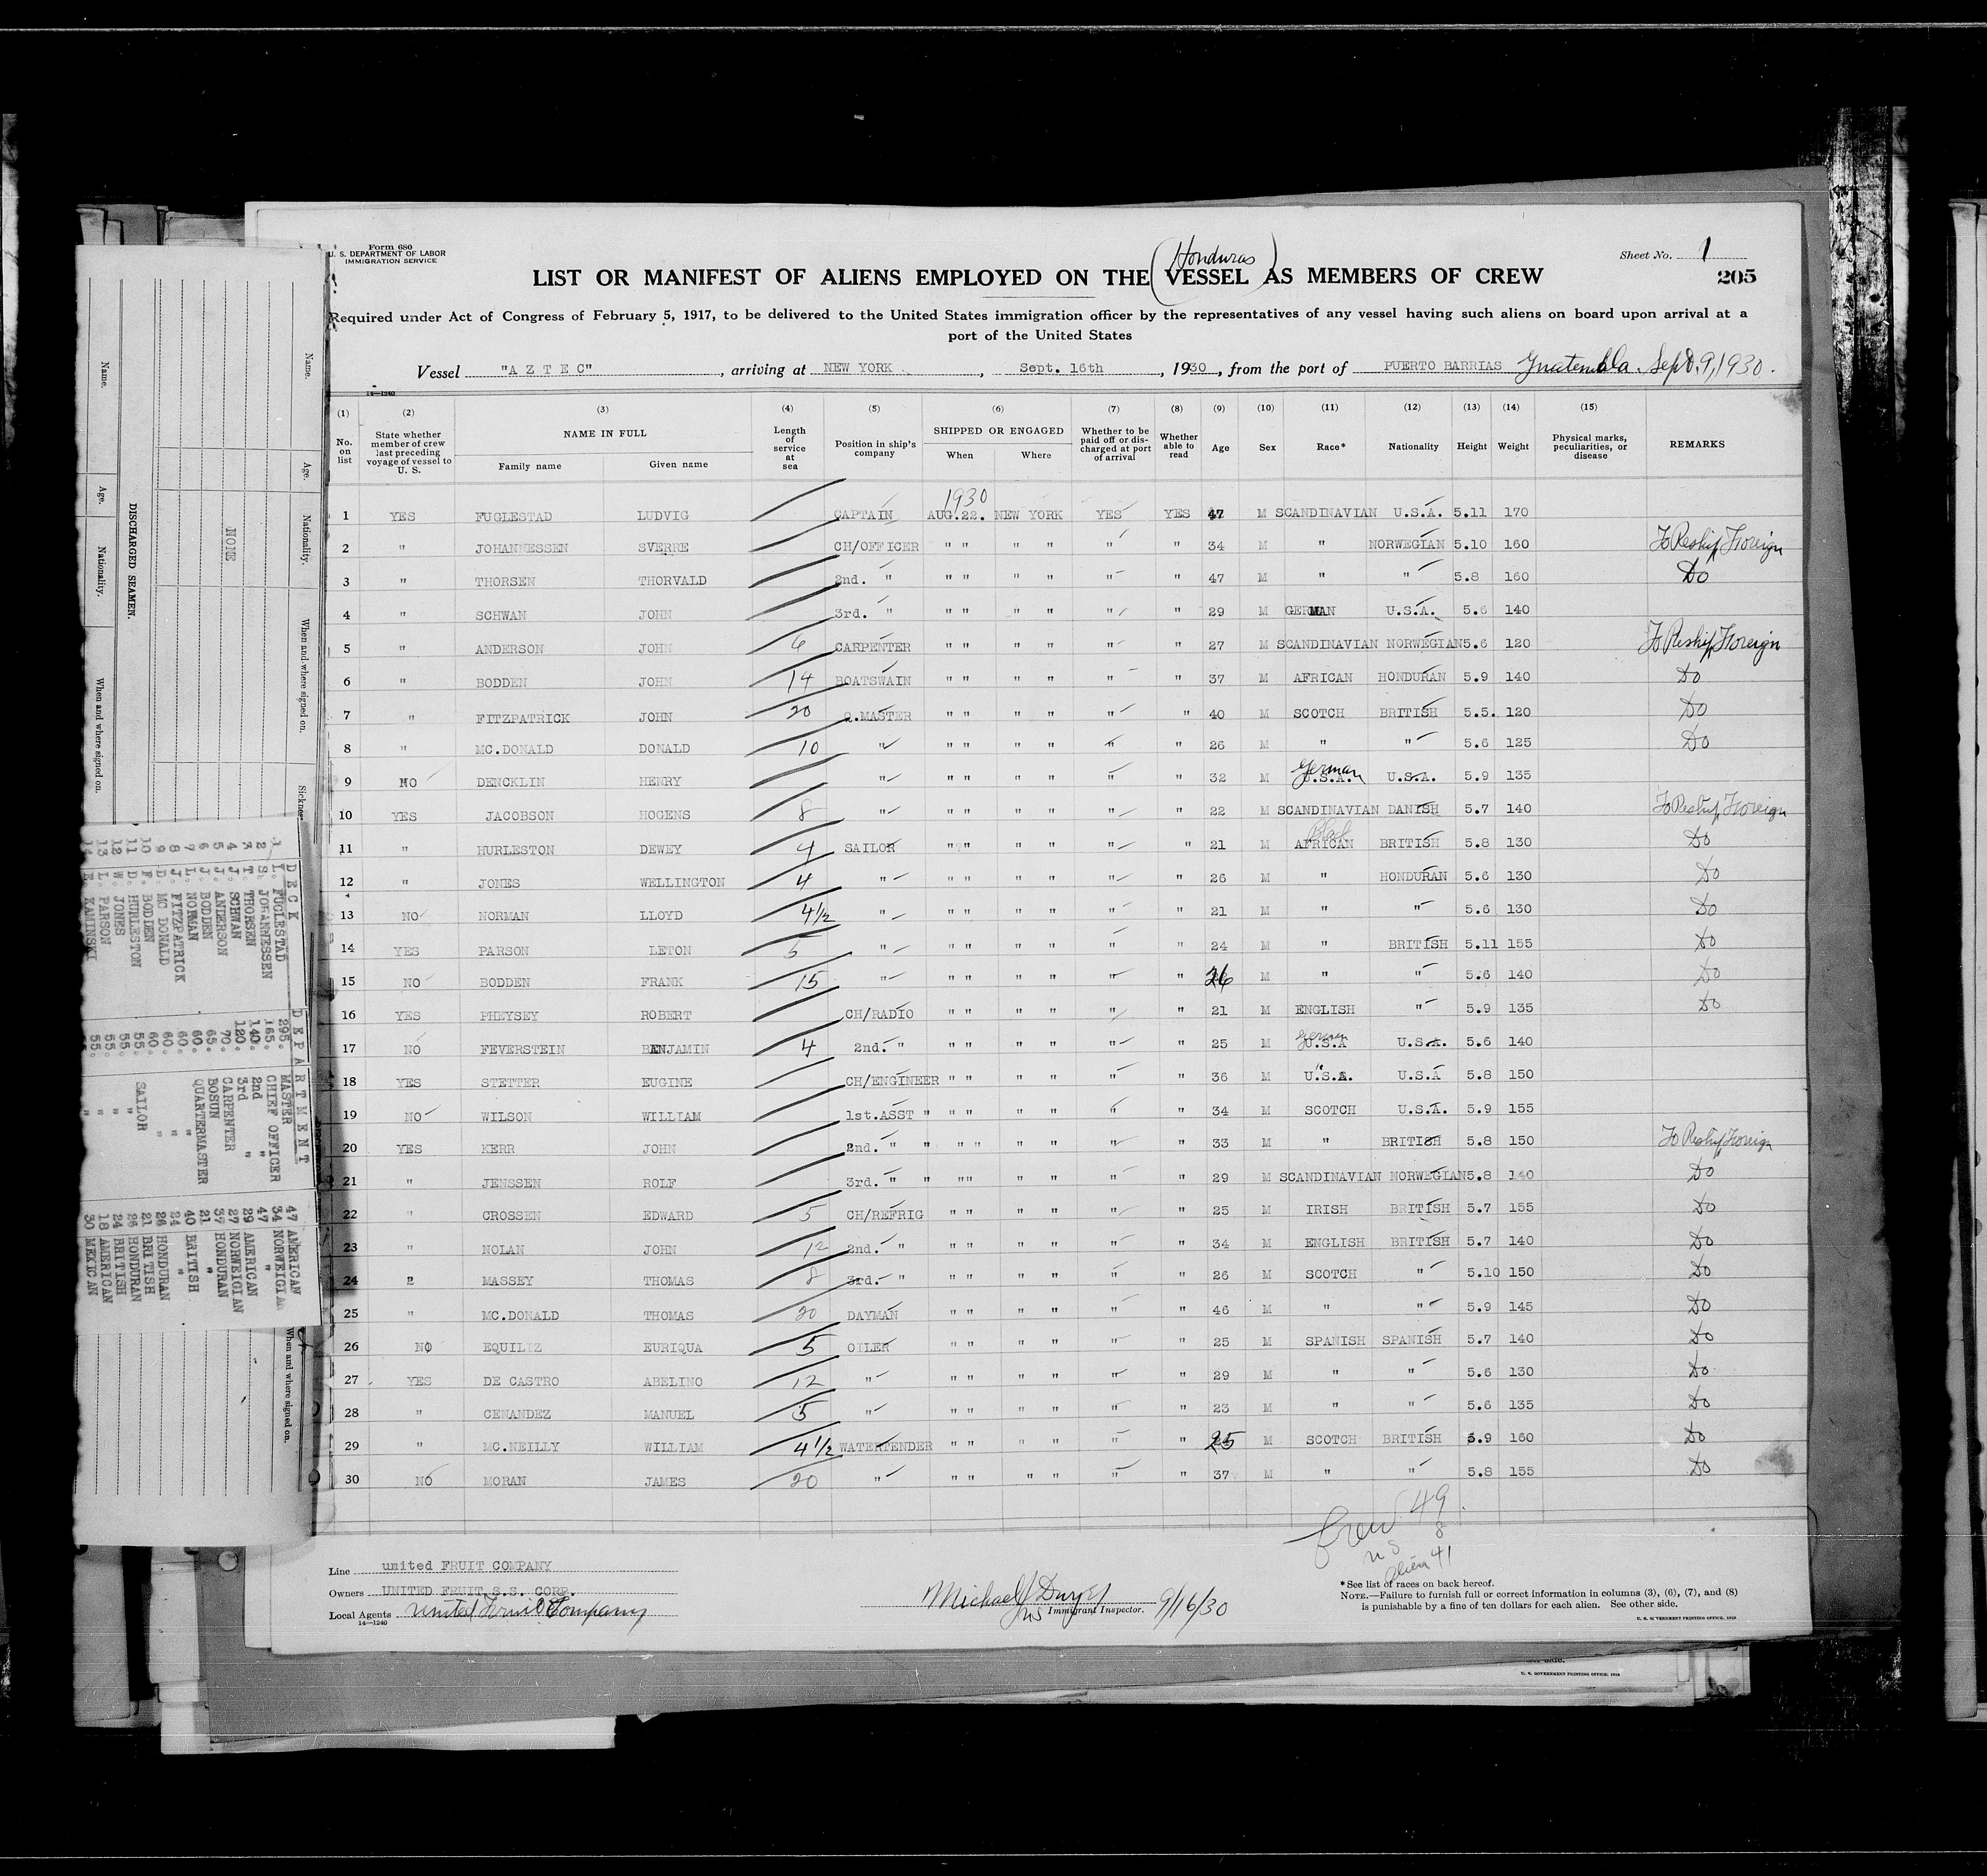 Form 680
U. S. DEPARTMENT OF LABOR
IMMIGRATION SERVICE
(Honduras)
Sheet No. 1
LIST OR MANIFEST OF ALIENS EMPLOYED ON THE VESSEL AS MEMBERS OF CREW
205
Required under Act of Congress of February 5, 1917, to be delivered to the United States immigration officer by the representatives of any vessel having such aliens on board upon arrival at a
port of the United States
Vessel "A Z T E C", arriving at NEW YORK, Sept. 16th, 1930, from the port of PUERTO BARRIAS Guatemala. Sept. 9, 1930.
14—1240
(1) (2) (3) (4) (5) (6) (7) (8) (9) (10) (11) (12) (13) (14) (15)
No. on list
State whether member of crew last preceding voyage of vessel to U. S.
NAME IN FULL
Family name
Given name
Length of service at sea
Position in ship's company
SHIPPED OR ENGAGED
When
Where
Whether to be paid off or discharged at port of arrival
Whether able to read
Age
Sex
Race*
Nationality
Height
Weight
Physical marks, peculiarities, or disease
REMARKS
1930
1 YES FUGLESTAD LUDVIG CAPTAIN AUG.22. NEW YORK YES YES 47 M SCANDINAVIAN U.S.A. 5.11 170
2 " JOHANNESSEN SVERRE CH/OFFICER " " " " " " 34 M " NORWEGIAN 5.10 160 To Reship Foreign
3 " THORSEN THORVALD 2nd. " " " " " " " 47 M " " 5.8 160 Do
4 " SCHWAN JOHN 3rd. " " " " " " " 29 M GERMAN U.S.A. 5.6 140
5 " ANDERSON JOHN 6 CARPENTER " " " " " " 27 M SCANDINAVIAN NORWEGIAN 5.6 120 To Reship Foreign
6 " BODDEN JOHN 14 BOATSWAIN " " " " " " 37 M AFRICAN HONDURAN 5.9 140 Do
7 " FITZPATRICK JOHN 20 Q.MASTER " " " " " " 40 M SCOTCH BRITISH 5.5. 120 Do
8 " MC.DONALD DONALD 10 " " " " " " " 26 M " " 5.6 125 Do
9 NO DENCKLIN HENRY " " " " " " " 32 M German U.S.A. U.S.A. 5.9 135
10 YES JACOBSON HOGENS 8 " " " " " " " 22 M SCANDINAVIAN DANISH 5.7 140 To Reship Foreign
11 " HURLESTON DEWEY 4 SAILOR " " " " " " 21 M Black AFRICAN BRITISH 5.8 130 Do
12 " JONES WELLINGTON 4 " " " " " " " 26 M " HONDURAN 5.6 130 Do
13 NO NORMAN LLOYD 4½ " " " " " " " 21 M " " 5.6 130 Do
14 YES PARSON LETON 5 " " " " " " " 24 M " BRITISH 5.11 155 Do
15 NO BODDEN FRANK 15 " " " " " " " 26 M " " 5.6 140 Do
16 YES PHEYSEY ROBERT CH/RADIO " " " " " " 21 M ENGLISH " 5.9 135 Do
17 NO FEVERSTEIN BENJAMIN 4 2nd. " " " " " " " 25 M German U.S.A U.S.A. 5.6 140
18 YES STETTER EUGINE CH/ENGINEER " " " " " " 36 M U.S.A. U.S.A 5.8 150
19 NO WILSON WILLIAM 1st.ASST " " " " " " " 34 M SCOTCH U.S.A. 5.9 155
20 YES KERR JOHN 2nd. " " " " " " " " 33 M " BRITISH 5.8 150 To Reship Foreign
21 " JENSSEN ROLF 3rd. " " " " " " " " 29 M SCANDINAVIAN NORWEGIAN 5.8 140 Do
22 " CROSSEN EDWARD 5 CH/REFRIG " " " " " " 25 M IRISH BRITISH 5.7 155 Do
23 " NOLAN JOHN 12 2nd. " " " " " " " 34 M ENGLISH BRITISH 5.7 140 Do
24 " MASSEY THOMAS 8 3rd. " " " " " " " 26 M SCOTCH " 5.10 150 Do
25 " MC.DONALD THOMAS 20 DAYMAN " " " " " " 46 M " " 5.9 145 Do
26 NO EQUILIZ EURIQUA 5 OILER " " " " " " 25 M SPANISH SPANISH 5.7 140 Do
27 YES DE CASTRO ABELINO 12 " " " " " " " 29 M " " 5.6 130 Do
28 " CENANDEZ MANUEL 5 " " " " " " " 23 M " " 5.6 135 Do
29 " MC.NEILLY WILLIAM 4½ WATERTENDER " " " " " " 25 M SCOTCH BRITISH 5.9 160 Do
30 NO MORAN JAMES 20 " " " " " " " 37 M " " 5.8 155 Do
Crew 49.
8
US
Alien 41
Line united FRUIT COMPANY
Owners UNITED FRUIT S.S. CORP.
Local Agents United Fruit Company
14—1240
Michael J Dwyer
Immigrant Inspector. 9/16/30
*See list of races on back hereof.
NOTE.—Failure to furnish full or correct information in columns (3), (6), (7), and (8)
is punishable by a fine of ten dollars for each alien. See other side.
U. S. GOVERNMENT PRINTING OFFICE: 1929
U. S. GOVERNMENT PRINTING OFFICE: 1929
Name. Age. Nationality. When and where signed on.
NONE
DISCHARGED SEAMEN.
Name. Age. Nationality. When and where signed on.
When and where signed on.
DECK DEPARTMENT
1 L. FUGLESTAD 295. MASTER 47 AMERICAN
2 S. JOHANNESSEN 165. CHIEF OFFICER 34 NORWEIGIAN
3 T. THORSEN 140. 2nd " 47 "
4 J. SCHWAN 120. 3rd " 29 AMERICAN
5 J. ANDERSON 70. CARPENTER 27 NORWEIGIAN
6 J. BODDEN 65. BOSUN 37 HONDURAN
7 L. NORMAN 60. QUARTERMASTER 21 "
8 J. FITZPATRICK 60. " 40 BRITISH
9 D. MC DONALD 60. " 24 "
10 F. BODDEN 60. " 26 HONDURAN
11 D. HURLESTON 55. SAILOR 21 BRITISH
12 W. JONES 55. " 26 HONDURAN
13 L. PARSON 55. " 24 BRITISH
14 E. KAMINSKI 55. " 18 AMERICAN
30 MEXICAN